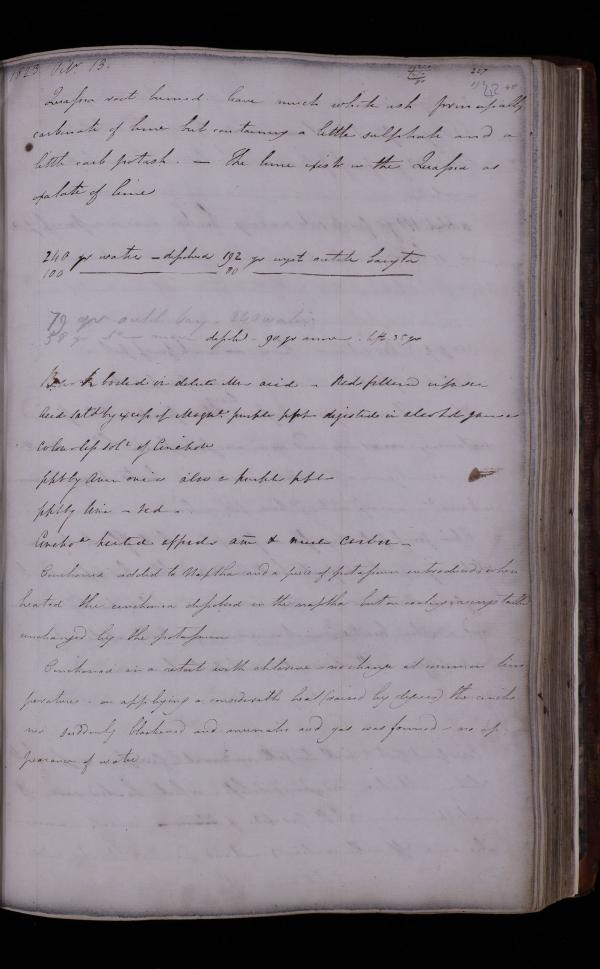 1823. Octr. 13.
227
Quassia root burned. Gave much white ash principally
carbonate of lime but containing a little sulphate and a
little carb potash. — The lime exists in the Quassia as
oxalate of lime
240 gr water — dissolved 192 gr cryst
100 80
79 grs
38 gr dissd. 90 gr left 35 grs
boiled in dilute Mur acid. Red filtered
acid satd by excess of Magna purple ppt digested in alcohol gave a
colourless soln of Cinchona
ppt by ammonia also a purple ppt
ppt by lime — red.
Cinchona heated affords am & much carbon —
Cinchonia added to Naptha and a piece of potassium introduced when
heated the cinchonia dissolved in the naptha but on cooling
unchanged by the potassium
Cinchonia in a retort with chlorine no change at common tem
peratures. on applying a considerable heat (raised by degrees) the cincho
nia suddenly blackened and muriatic acid gas was formed — no ap
pearance of water